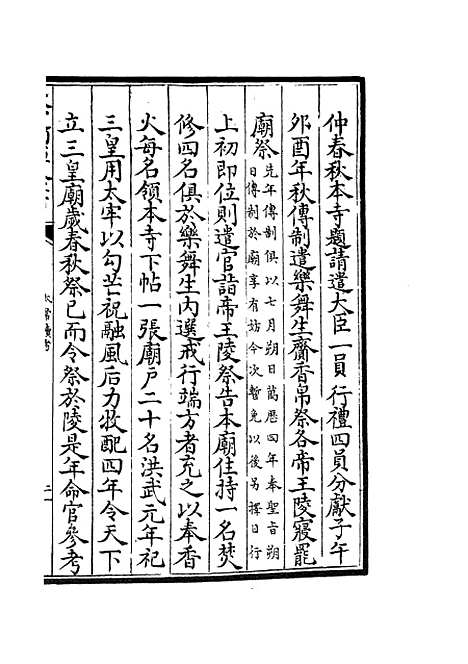 仲春秋本寺題請遣大臣一員行禮四員分獻子午
夘酉年秋傳制遣樂舞生齎香帛祭各帝王陵寢罷
廟祭先年傳制俱以七月朔日萬曆四年奉聖旨朔
日傳制於廟享有妨今次暫免以後另擇日行
上初即位則遣官詣帝王陵祭告本廟住持一名焚
修四名俱於樂舞生內選戒行端方者充之以奉香
火每名領本寺下帖一張廟戶二十名洪武元年祀
三皇用太牢以勾芒祝融風后力牧配四年令天下
立三皇廟歲春秋祭已而令祭於陵是年命官參考
太常續考